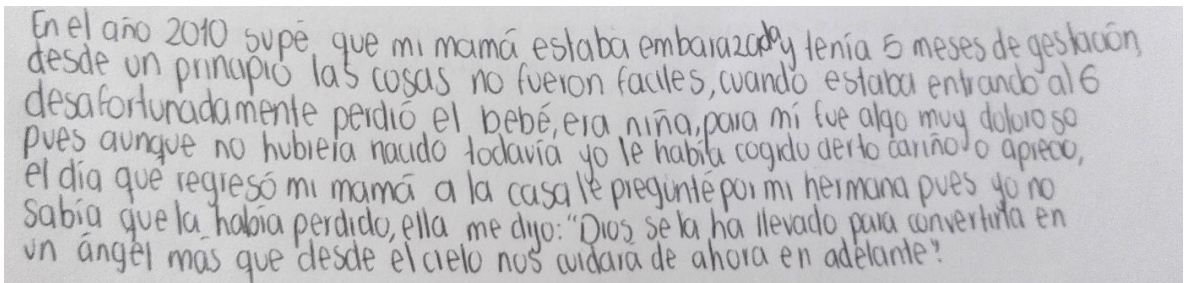 En el año 2010 supe que mi mamá estaba embarazada y tenía 5 meses de gestación,
desde un principio las cosas no fueron faciles, cuando estaba entrando al 6
desafortunadamente perdió el bebé, era niña, para mí fue algo muy doloroso
pues aunque no hubiera nacido todavía yo le había cogido cierto cariño o aprecio,
el día que regresó mi mamá a la casa le pregunté por mi hermana pues yo no
sabía que la había perdido, ella me dijo: "Dios se la ha llevado para convertirla en
un ángel más que desde el cielo nos cuidará de ahora en adelante".